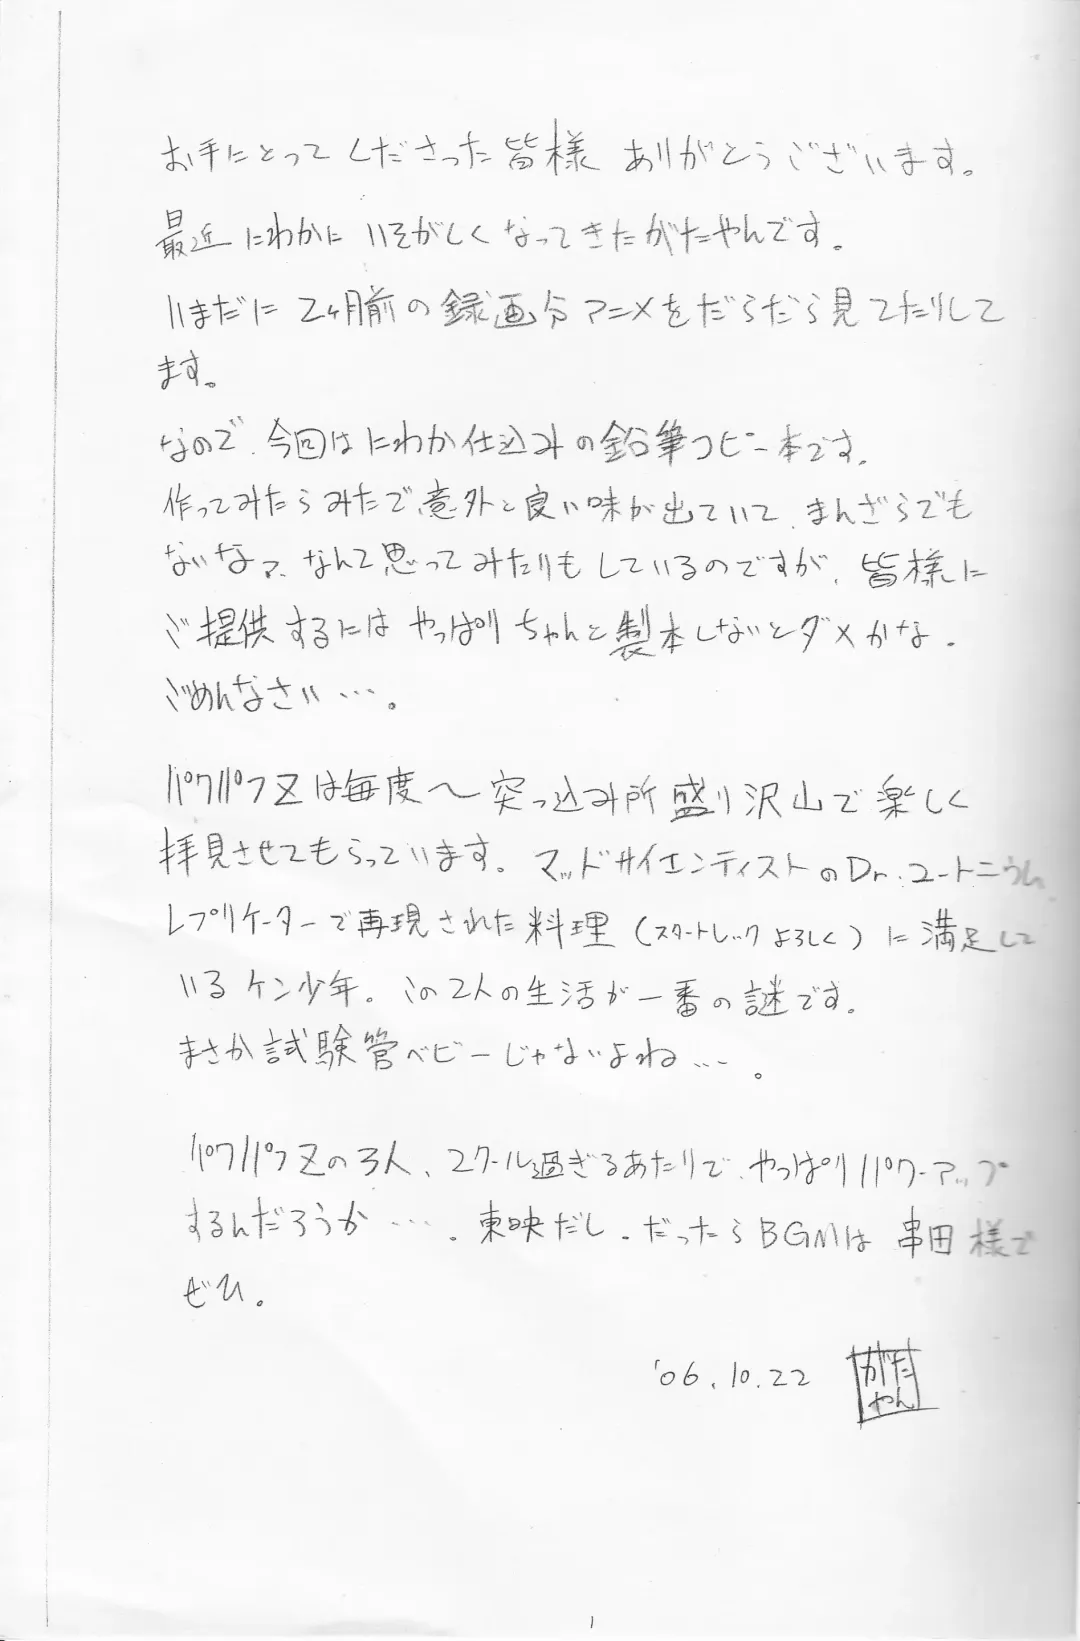 お手にとってくださった皆様 ありがとうございます。
最近 にわかに いそがしくなってきたがたやんです。
いまだに 2ヶ月前の録画分アニメをだらだら見てたりして
ます。
なので、今回はにわか仕込みの鉛筆コピー本です。
作ってみたらみたで意外と良い味が出ていて、まんざらでも
ないなァ、なんて思ってみたりもしているのですが、皆様に
ご提供するにはやっぱりちゃんと製本しないとダメかな。
ごめんなさい…。
パワパフZは毎度〜突っ込み所盛り沢山で楽しく
拝見させてもらっています。マッドサイエンティストのDr.ユートニウム
レプリケーターで再現された料理(スタートレックよろしく)に満足して
いるケン少年。この2人の生活が一番の謎です。
まさか試験管ベビーじゃないよね…。
パワパフZの3人、2クール過ぎるあたりで、やっぱりパワーアップ
するんだろうか…。東映だし。だったらBGMは串田様で
ぜひ。
'06.10.22
がた
やん
1